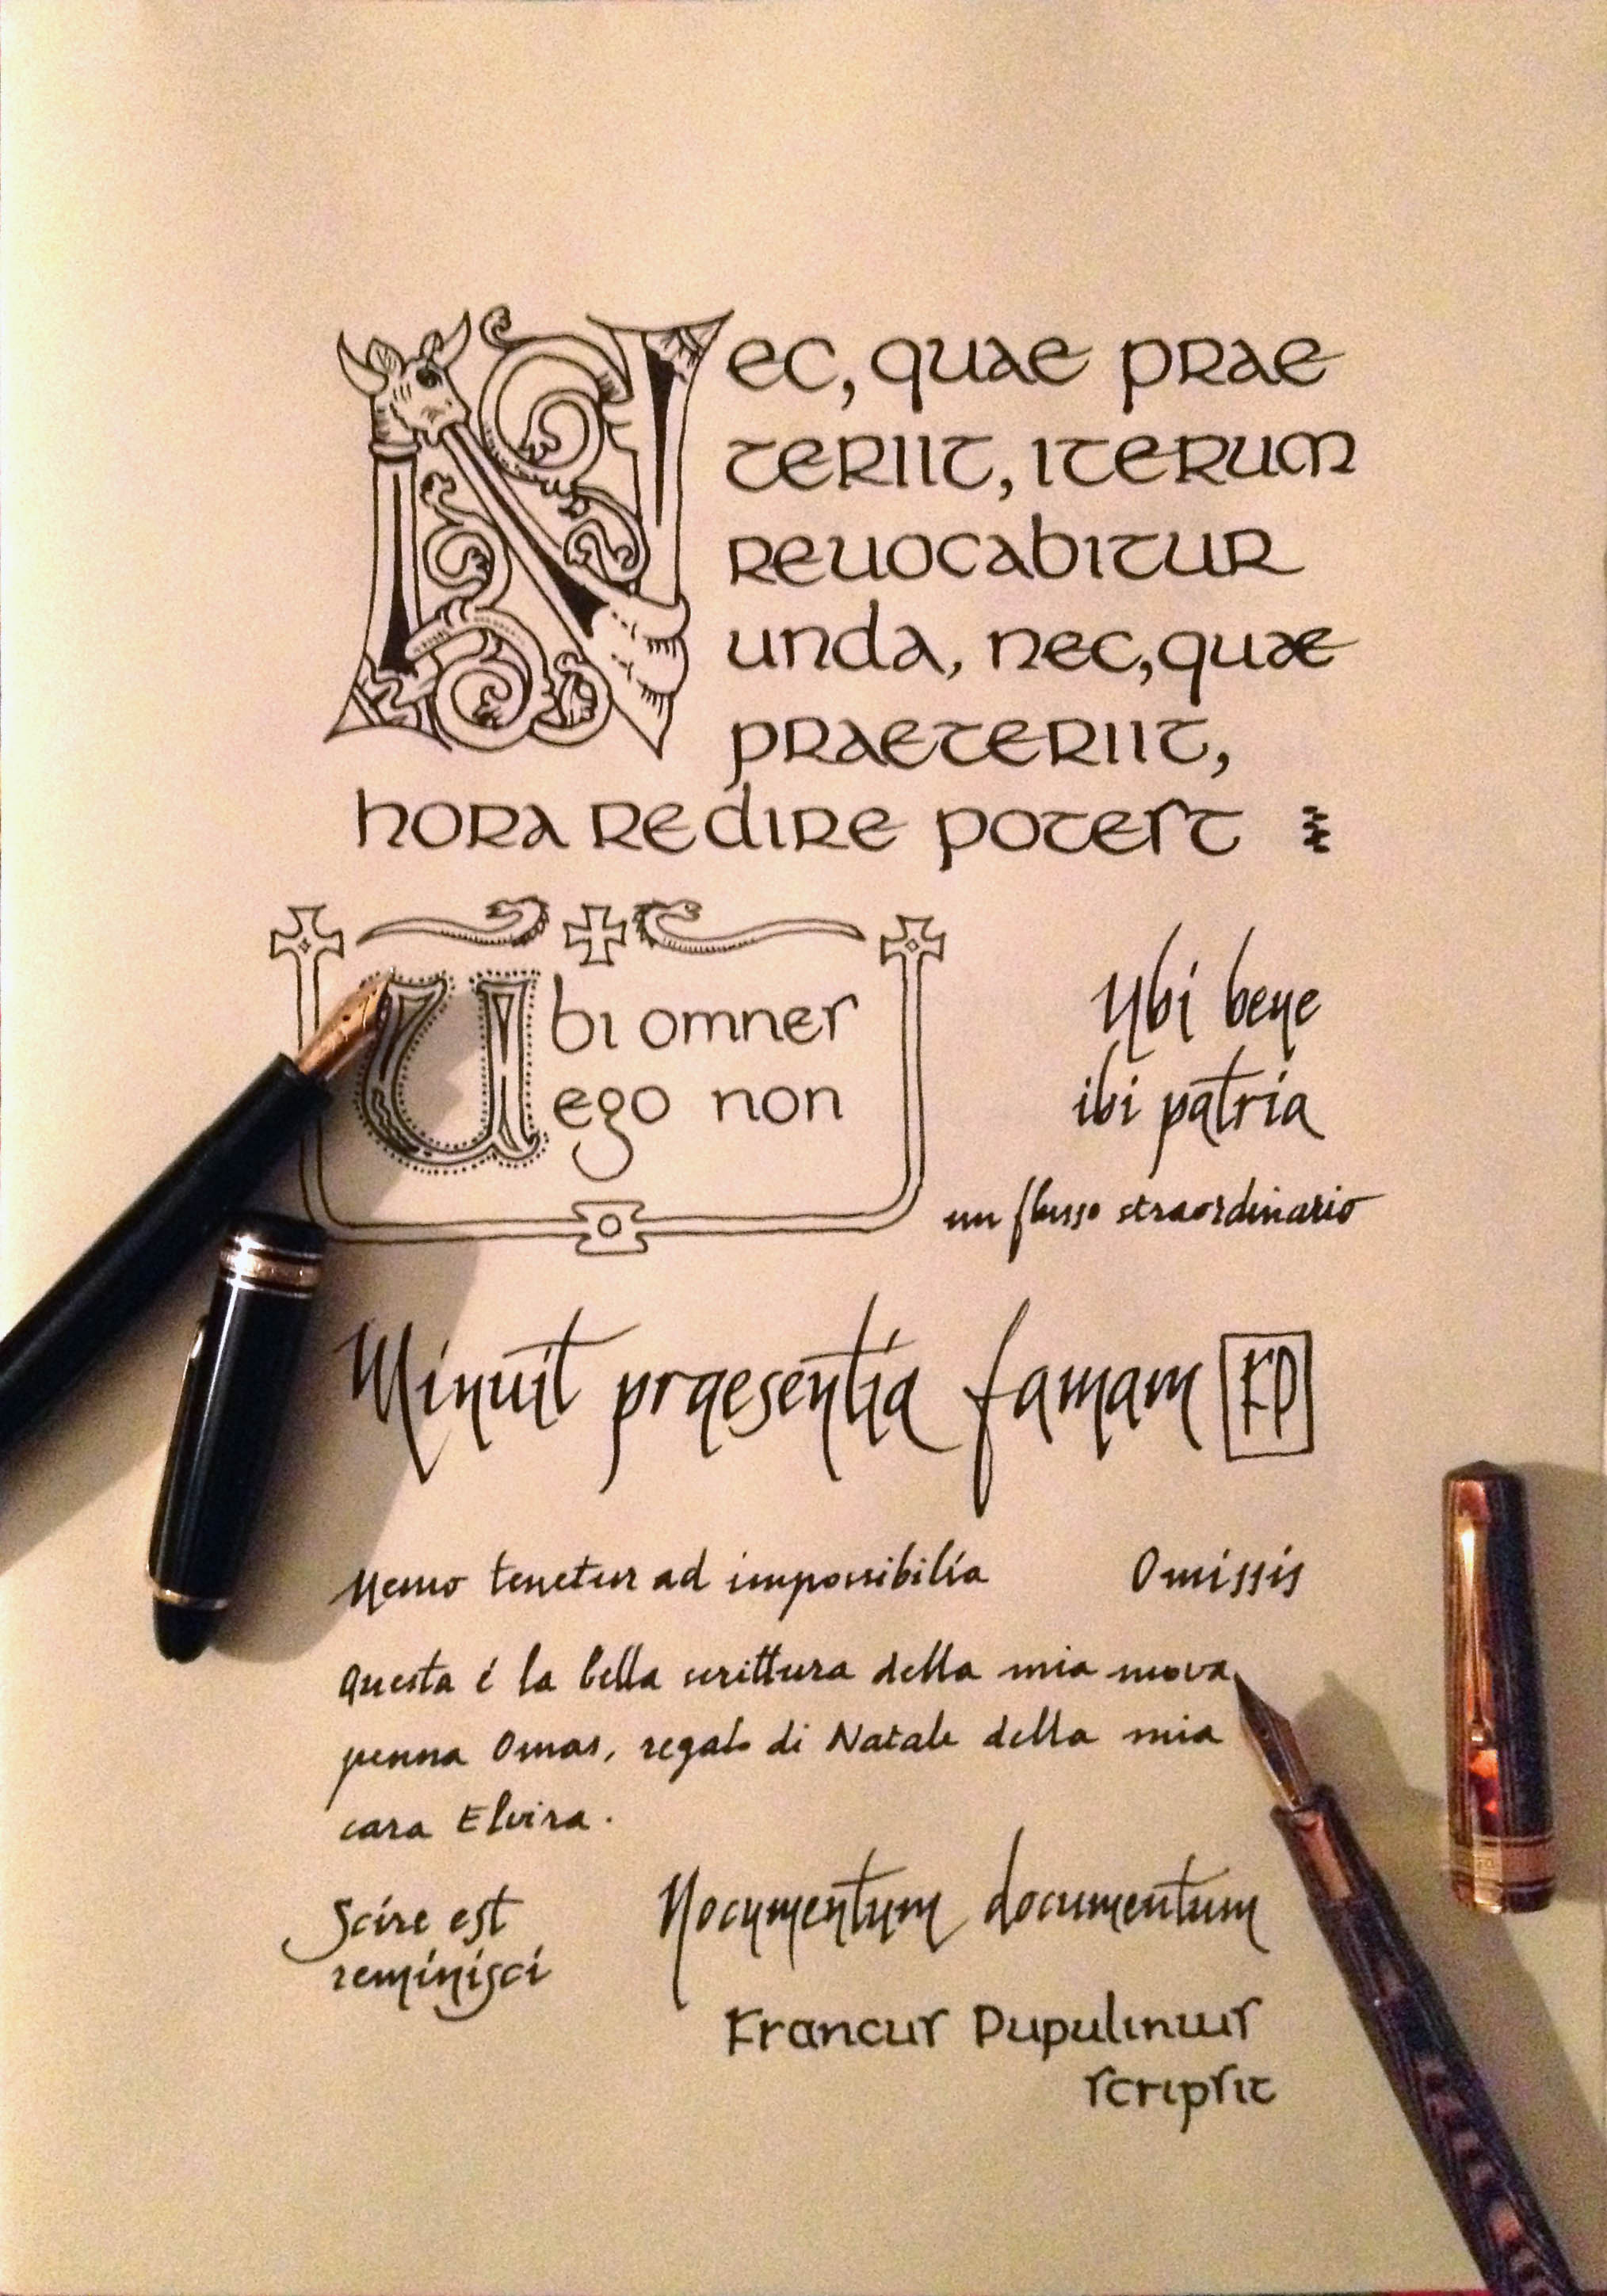 Nec, quae prae
teriit, iterum
reuocabitur
unda, nec, quae
praeteriit,
hora redire potest
Ubi omnes
ego non
Ubi bene
ibi patria
un flusso straordinario
Minuit praesentia famam FP
Nemo tenetur ad impossibilia
Omissis
Questa é la bella scrittura della mia nuova
penna Omas, regalo di Natale della mia
cara Elvira.
Scire est
reminisci
Nocumentum documentum
Francus Pupulinus
scripsit